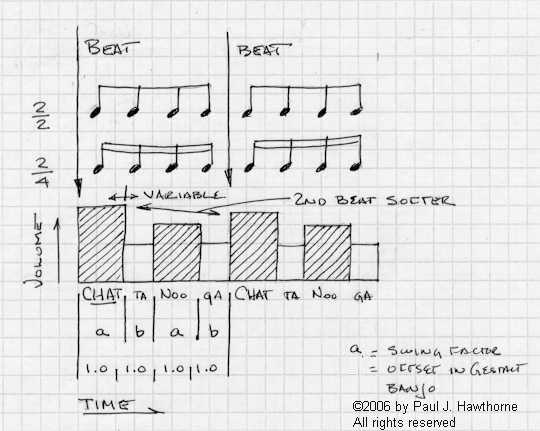 BEAT BEAT
2
2
2
4
VARIABLE
2ND BEAT SOFTER
VOLUME
CHAT TA NOO GA CHAT TA NOO GA
a b a b
1.0 1.0 1.0 1.0
a = SWING FACTOR
= OFFSET IN GESTALT
BANJO
TIME
©2006 by Paul J. Hawthorne
All rights reserved